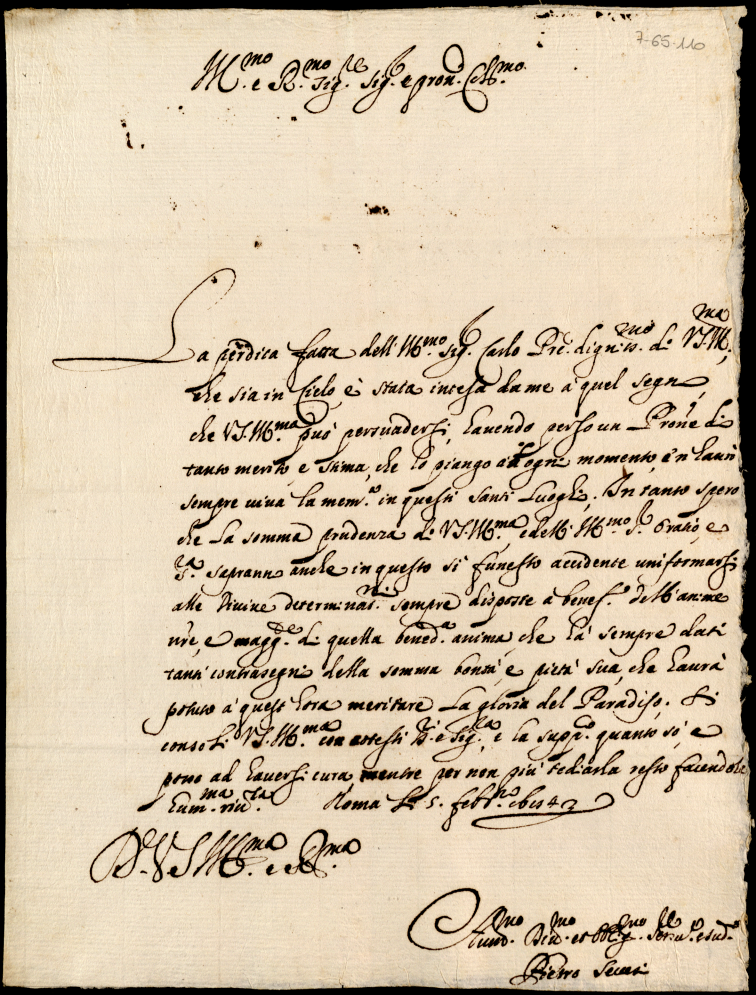 7-65-110
Ill.mo e R.mo Sig.re Sig.r e Pron. Col.mo
La perdita fatta dell' Ill.mo Sig.r Carlo Pre. digniss.mo di V.S. Ill.ma
che sia in Cielo, è stata intesa da me à quel segno,
che V.S. Ill.ma può persuadersi, havendo perso un Prone di
tanto merito, e stima, che lo piango ad ogni momento, e n'haurò
sempre viva la mem.a in questi Santi Luoghi. In tanto spero
che la somma prudenza di V.S. Ill.ma, e dell' Ill.mo S.r Oratio, e
S.ra sapranno anche in questo sì funesto accidente uniformarsi
alle Divine determinat.ni sempre disposte a benef.o dell'anime
nre, e magg.te di quella bened.a anima, che hà sempre dati
tanti contrasegni della somma bontà, e pietà sua, che haurà
potuto à quest'hora meritare la gloria del Paradiso. Si
consoli V.S. Ill.ma con cotesti e Sig.ra, e la supp.co quanto sò, e
posso ad haversi cura, mentre per non più tediarla resto facendole
hum.ma riv.za Roma li 5. febb.ro
Di V.S. Ill.ma e R.ma
Hum.mo Div.mo et Obl.mo Ser.re
Pietro